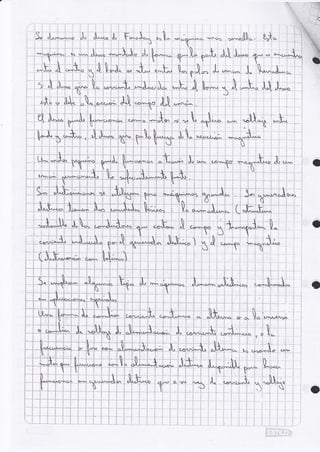 Se denomina de disco de Faraday es la maquina mas sencilla. Esta
maquina es un disco montado de forma que la parte del disco que se encuentra
entre el centro y el borde se situa entre los polos de iman de herradura.
Si el disco gira la corriente inducida entre el borde y el centro del disco
esto se debe a la accion del campo del iman.
El disco puede funcionar como motor si se le aplica un voltaje entre
borde y centro, el disco gira por la fuerza de la reaccion magnetica
Un motor pequeño puede funcionar a traves de un campo magnetico de un
iman permanente lo suficientemente fuerte
Los electroimanes se utilizan para maquinas grandes. Los generadores
electricos tienen dos unidades basicas. La armadura (estructura
sostenible de los conductores que cortan el campo y transportan la
corriente inducida por el generador electrico) y el campo magnetico
(electroiman con bobina)
Se emplean algunos tipos de maquinas dinamoelectricas combinados
en aplicaciones especiales
Una forma de cambiar corriente continua a alterna o a la inversa
o cambiar de voltaje de alimentacion de corriente continua, o la
frecuencia o fase con alimentacion de corriente alterna es usando un
motor que funciona con la alimentacion electrica disponible para hacer
funcionar un generador electrico que a su vez de corriente y voltaje